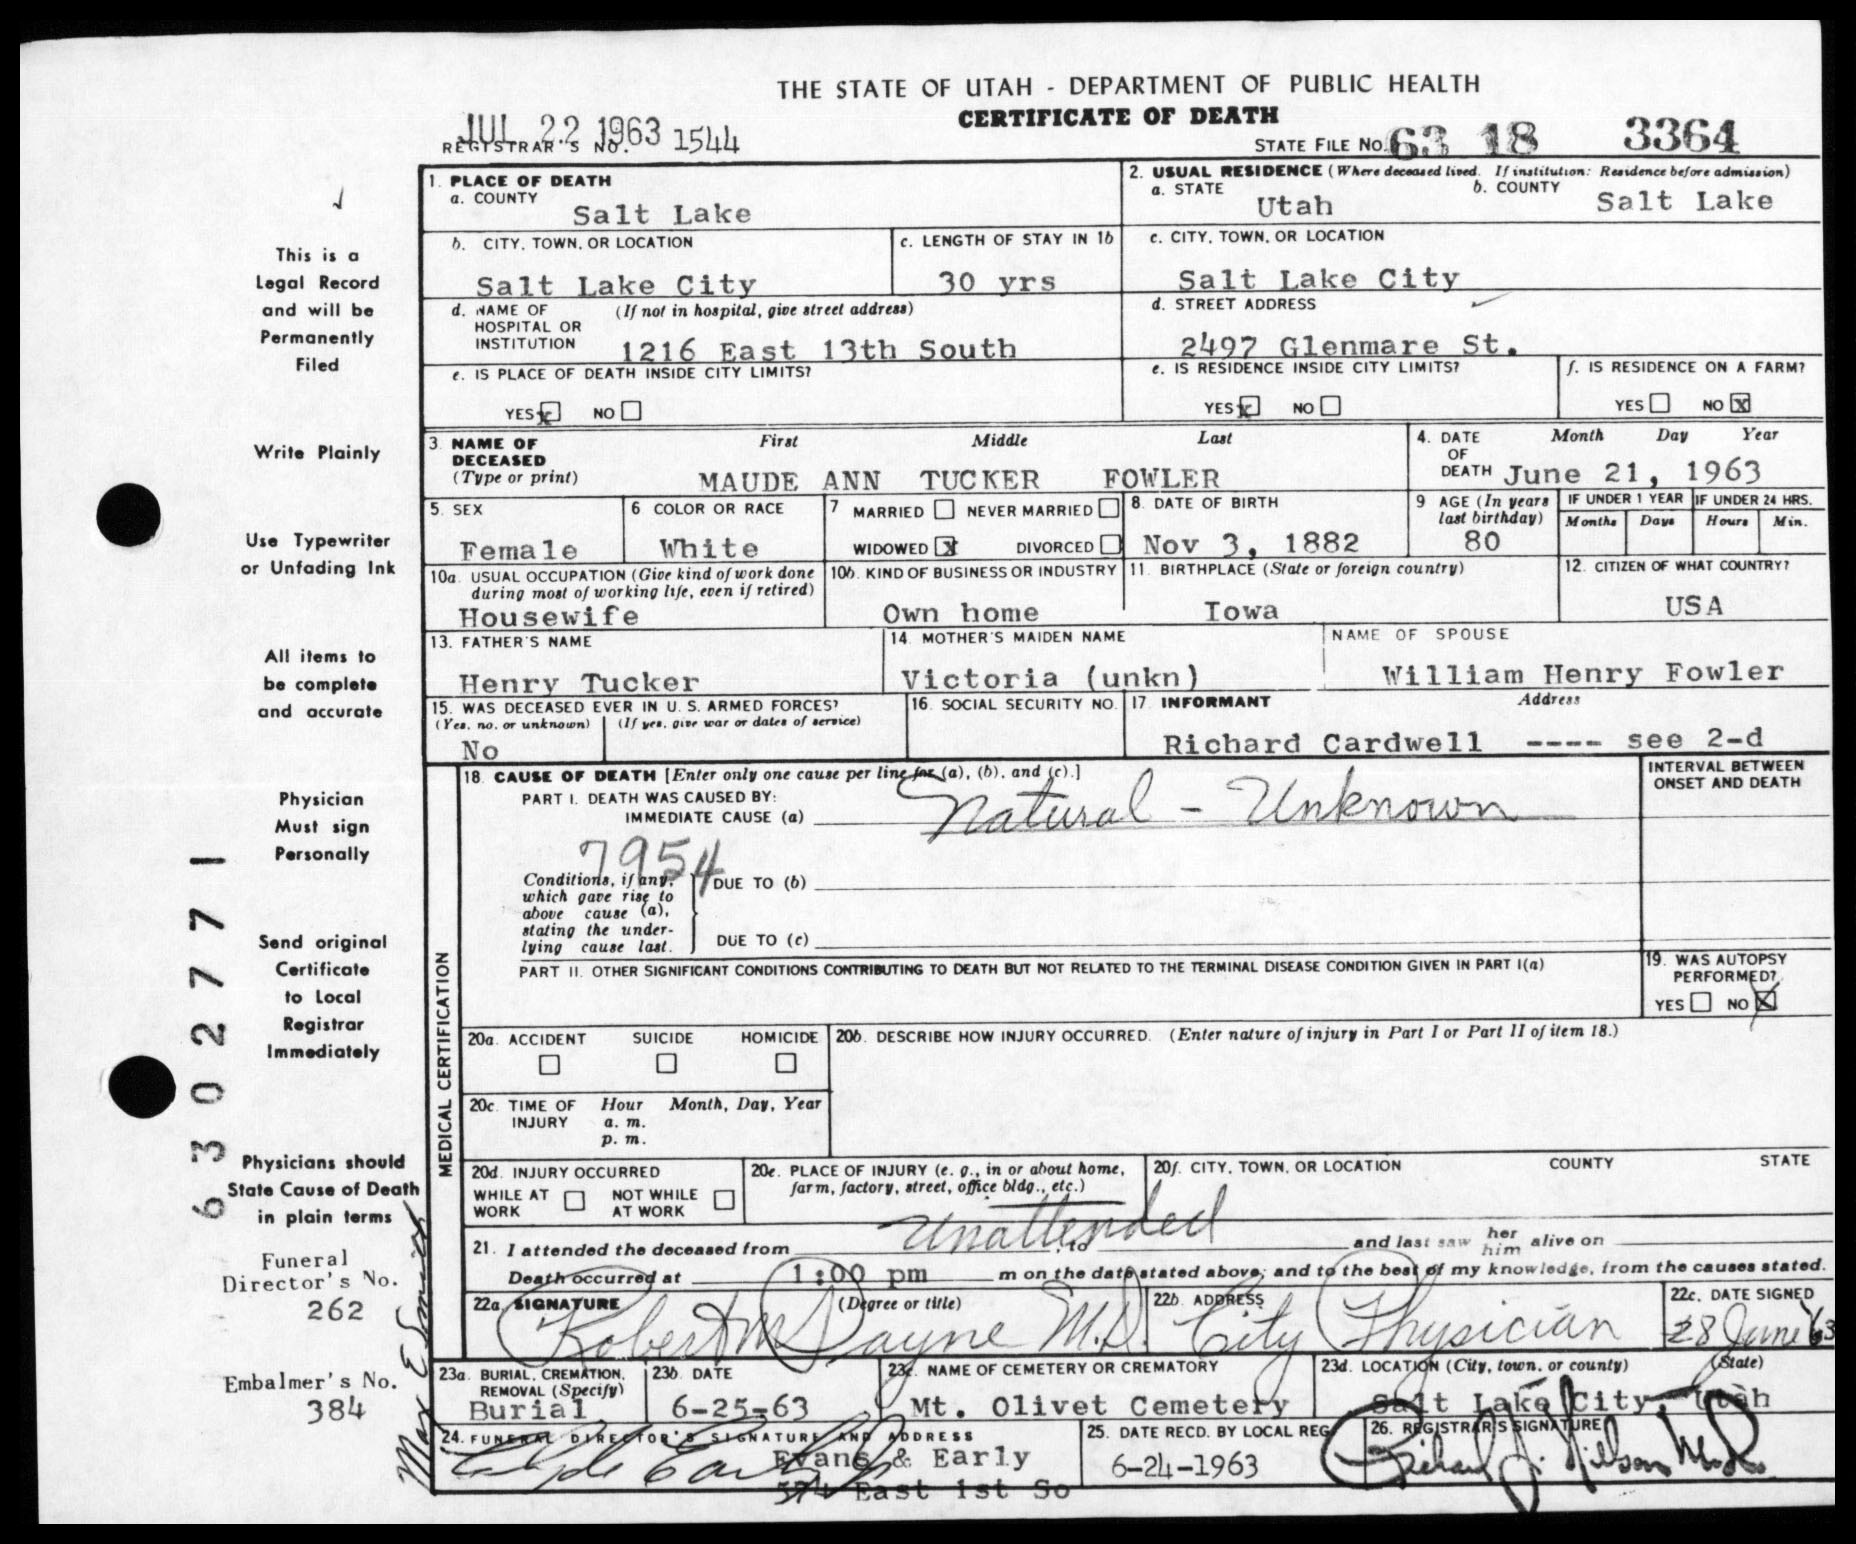 THE STATE OF UTAH - DEPARTMENT OF PUBLIC HEALTH
CERTIFICATE OF DEATH
JUL 22 1963
REGISTRAR'S NO. 1544
STATE FILE NO. 63 18 3364
1. PLACE OF DEATH
a. COUNTY
Salt Lake
2. USUAL RESIDENCE (Where deceased lived. If institution: Residence before admission)
a. STATE Utah b. COUNTY Salt Lake
b. CITY, TOWN, OR LOCATION
Salt Lake City
c. LENGTH OF STAY IN 1b
30 yrs
c. CITY, TOWN, OR LOCATION
Salt Lake City
d. NAME OF HOSPITAL OR INSTITUTION (If not in hospital, give street address)
1216 East 13th South
d. STREET ADDRESS
2497 Glenmare St.
e. IS PLACE OF DEATH INSIDE CITY LIMITS?
YES x NO
e. IS RESIDENCE INSIDE CITY LIMITS?
YES x NO
f. IS RESIDENCE ON A FARM?
YES NO x
3. NAME OF DECEASED (Type or print)
First Middle Last
MAUDE ANN TUCKER FOWLER
4. DATE OF DEATH Month Day Year
June 21, 1963
5. SEX
Female
6 COLOR OR RACE
White
7 MARRIED NEVER MARRIED
WIDOWED x DIVORCED
8. DATE OF BIRTH
Nov 3, 1882
9 AGE (In years last birthday)
80
IF UNDER 1 YEAR
Months Days
IF UNDER 24 HRS.
Hours Min.
10a. USUAL OCCUPATION (Give kind of work done during most of working life, even if retired)
Housewife
10b. KIND OF BUSINESS OR INDUSTRY
Own home
11. BIRTHPLACE (State or foreign country)
Iowa
12. CITIZEN OF WHAT COUNTRY?
USA
13. FATHER'S NAME
Henry Tucker
14. MOTHER'S MAIDEN NAME
Victoria (unkn)
NAME OF SPOUSE
William Henry Fowler
15. WAS DECEASED EVER IN U. S. ARMED FORCES?
(Yes, no, or unknown) (If yes, give war or dates of service)
No
16. SOCIAL SECURITY NO.
17. INFORMANT Address
Richard Cardwell ---- see 2-d
MEDICAL CERTIFICATION
18. CAUSE OF DEATH [Enter only one cause per line for (a), (b), and (c).]
PART I. DEATH WAS CAUSED BY:
IMMEDIATE CAUSE (a) Natural - Unknown
INTERVAL BETWEEN ONSET AND DEATH
7954
Conditions, if any, which gave rise to above cause (a), stating the underlying cause last.
DUE TO (b)
DUE TO (c)
PART II. OTHER SIGNIFICANT CONDITIONS CONTRIBUTING TO DEATH BUT NOT RELATED TO THE TERMINAL DISEASE CONDITION GIVEN IN PART I(a)
19. WAS AUTOPSY PERFORMED?
YES NO X
20a. ACCIDENT SUICIDE HOMICIDE
20b. DESCRIBE HOW INJURY OCCURRED. (Enter nature of injury in Part I or Part II of item 18.)
20c. TIME OF INJURY Hour Month, Day, Year
a. m.
p. m.
20d. INJURY OCCURRED
WHILE AT WORK NOT WHILE AT WORK
20e. PLACE OF INJURY (e. g., in or about home, farm, factory, street, office bldg., etc.)
20f. CITY, TOWN, OR LOCATION COUNTY STATE
21. I attended the deceased from Unattended, to and last saw her him alive on
Death occurred at 1:00 pm m on the date stated above; and to the best of my knowledge, from the causes stated.
22a. SIGNATURE (Degree or title)
Robert M Dayne M.D.
22b. ADDRESS
City Physician
22c. DATE SIGNED
28 June '63
23a. BURIAL, CREMATION, REMOVAL (Specify)
Burial
23b. DATE
6-25-63
23c. NAME OF CEMETERY OR CREMATORY
Mt. Olivet Cemetery
23d. LOCATION (City, town, or county) (State)
Salt Lake City, Utah
24. FUNERAL DIRECTOR'S SIGNATURE AND ADDRESS
Clyde Early
Evans & Early
574 East 1st So
25. DATE RECD. BY LOCAL REG
6-24-1963
26. REGISTRAR'S SIGNATURE
Richard J. Nilson M.D.
This is a
Legal Record
and will be
Permanently
Filed
Write Plainly
Use Typewriter
or Unfading Ink
All items to
be complete
and accurate
Physician
Must sign
Personally
Send original
Certificate
to Local
Registrar
Immediately
Physicians should
State Cause of Death
in plain terms
Funeral
Director's No.
262
Embalmer's No.
384
6302771
Max E